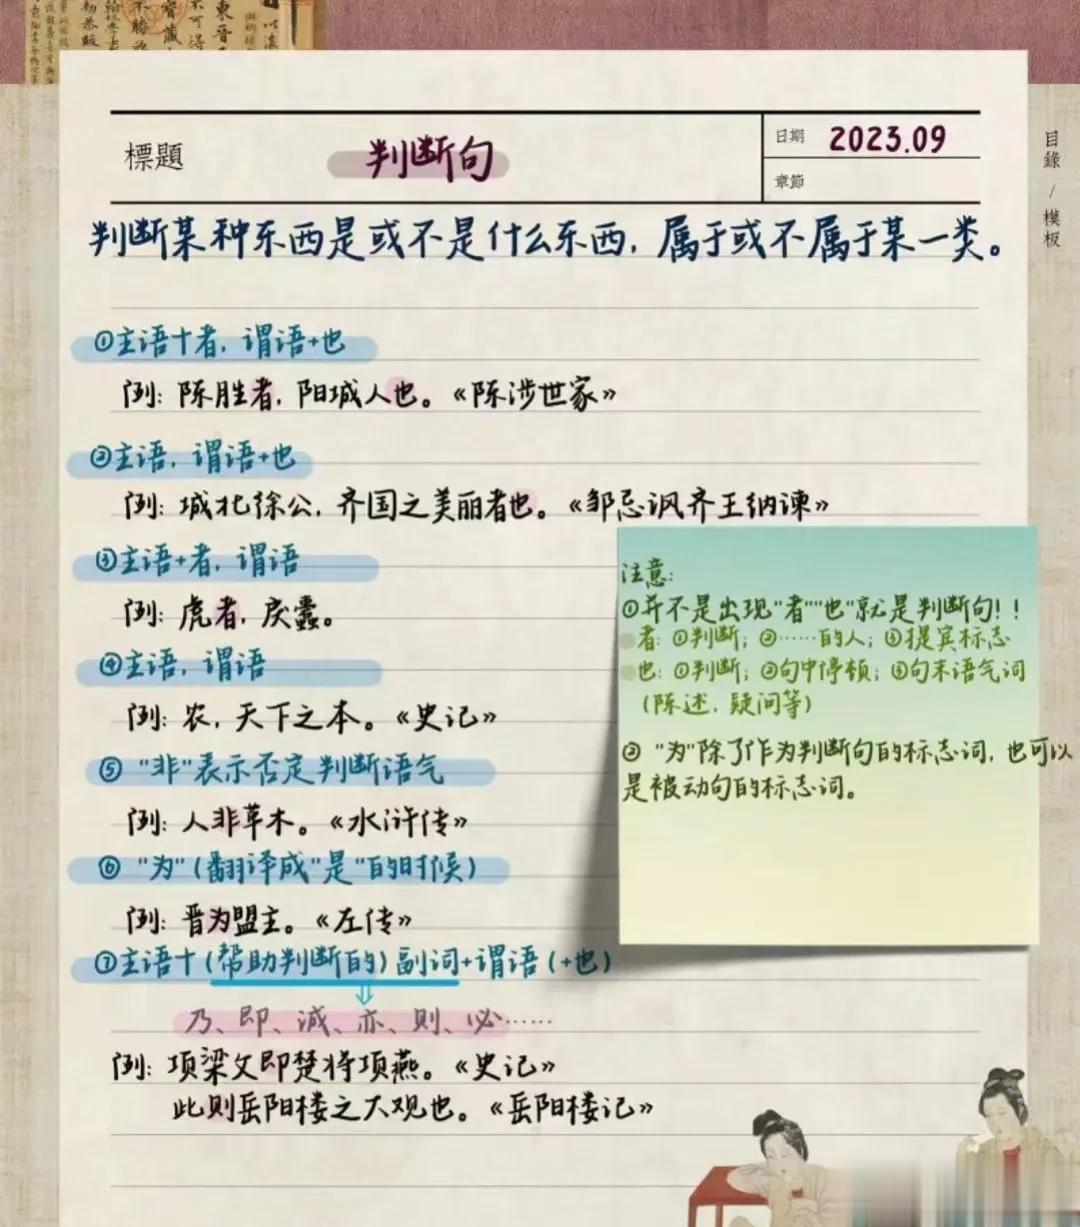 標題
判断句
日期 2023.09
章節
目錄 / 模板
判断某种东西是或不是什么东西，属于或不属于某一类。
①主语+者，谓语+也
例：陈胜者，阳城人也。《陈涉世家》
②主语，谓语+也
例：城北徐公，齐国之美丽者也。《邹忌讽齐王纳谏》
③主语+者，谓语
例：虎者，戾虫。
④主语，谓语
例：农，天下之本。《史记》
⑤ "非"表示否定判断语气
例：人非草木。《水浒传》
⑥ "为"(翻译成"是"的时候)
例：晋为盟主。《左传》
⑦主语+(帮助判断的)副词+谓语(+也)
乃、即、诚、亦、则、必……
例：项梁父即楚将项燕。《史记》
此则岳阳楼之大观也。《岳阳楼记》
注意：
①并不是出现"者""也"就是判断句！！
者：①判断；②……的人；③提宾标志
也：①判断；②句中停顿；③句末语气词
(陈述，疑问等)
② "为"除了作为判断句的标志词，也可以
是被动句的标志词。